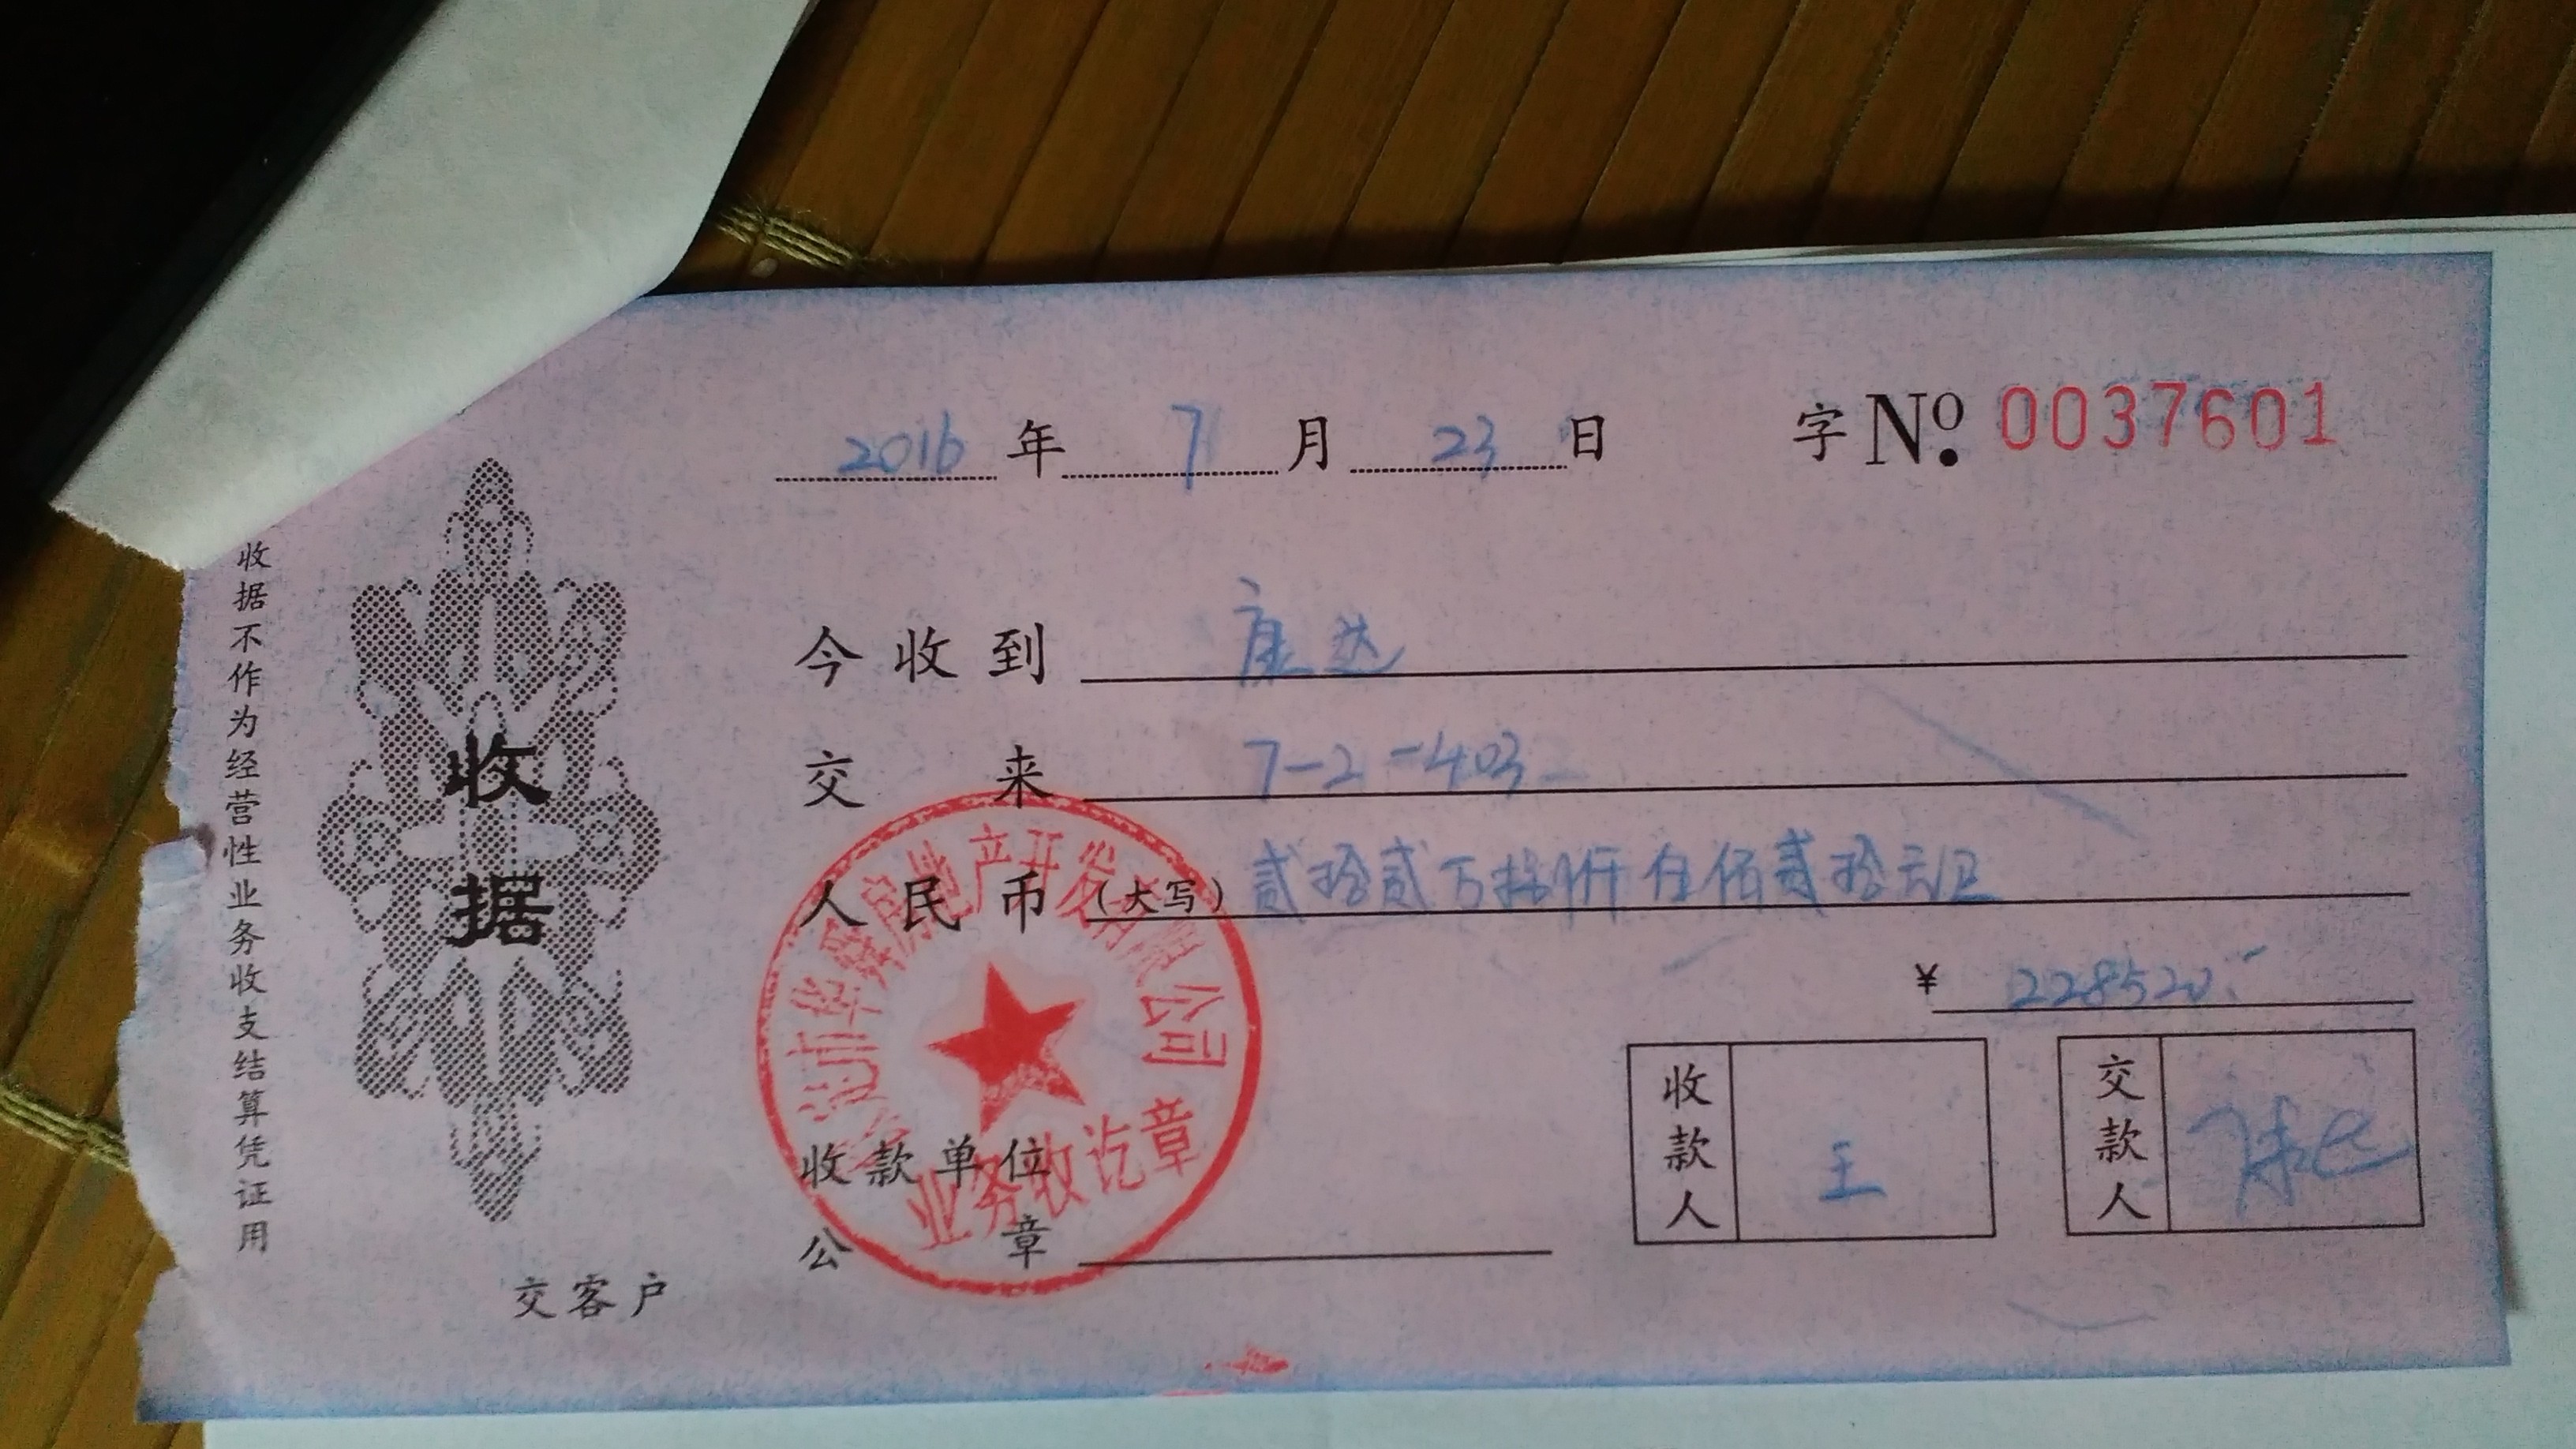 2016年7月23日 字№ 0037601
今收到 康达
交来 7-2-403
人民币（大写）贰拾贰万捌仟伍佰贰拾元正
¥ 228520.-
收款人 王
交款人
收款单位
公章
房地产开发有限公司
业务收讫章
收据
收据不作为经营性业务收支结算凭证用
交客户